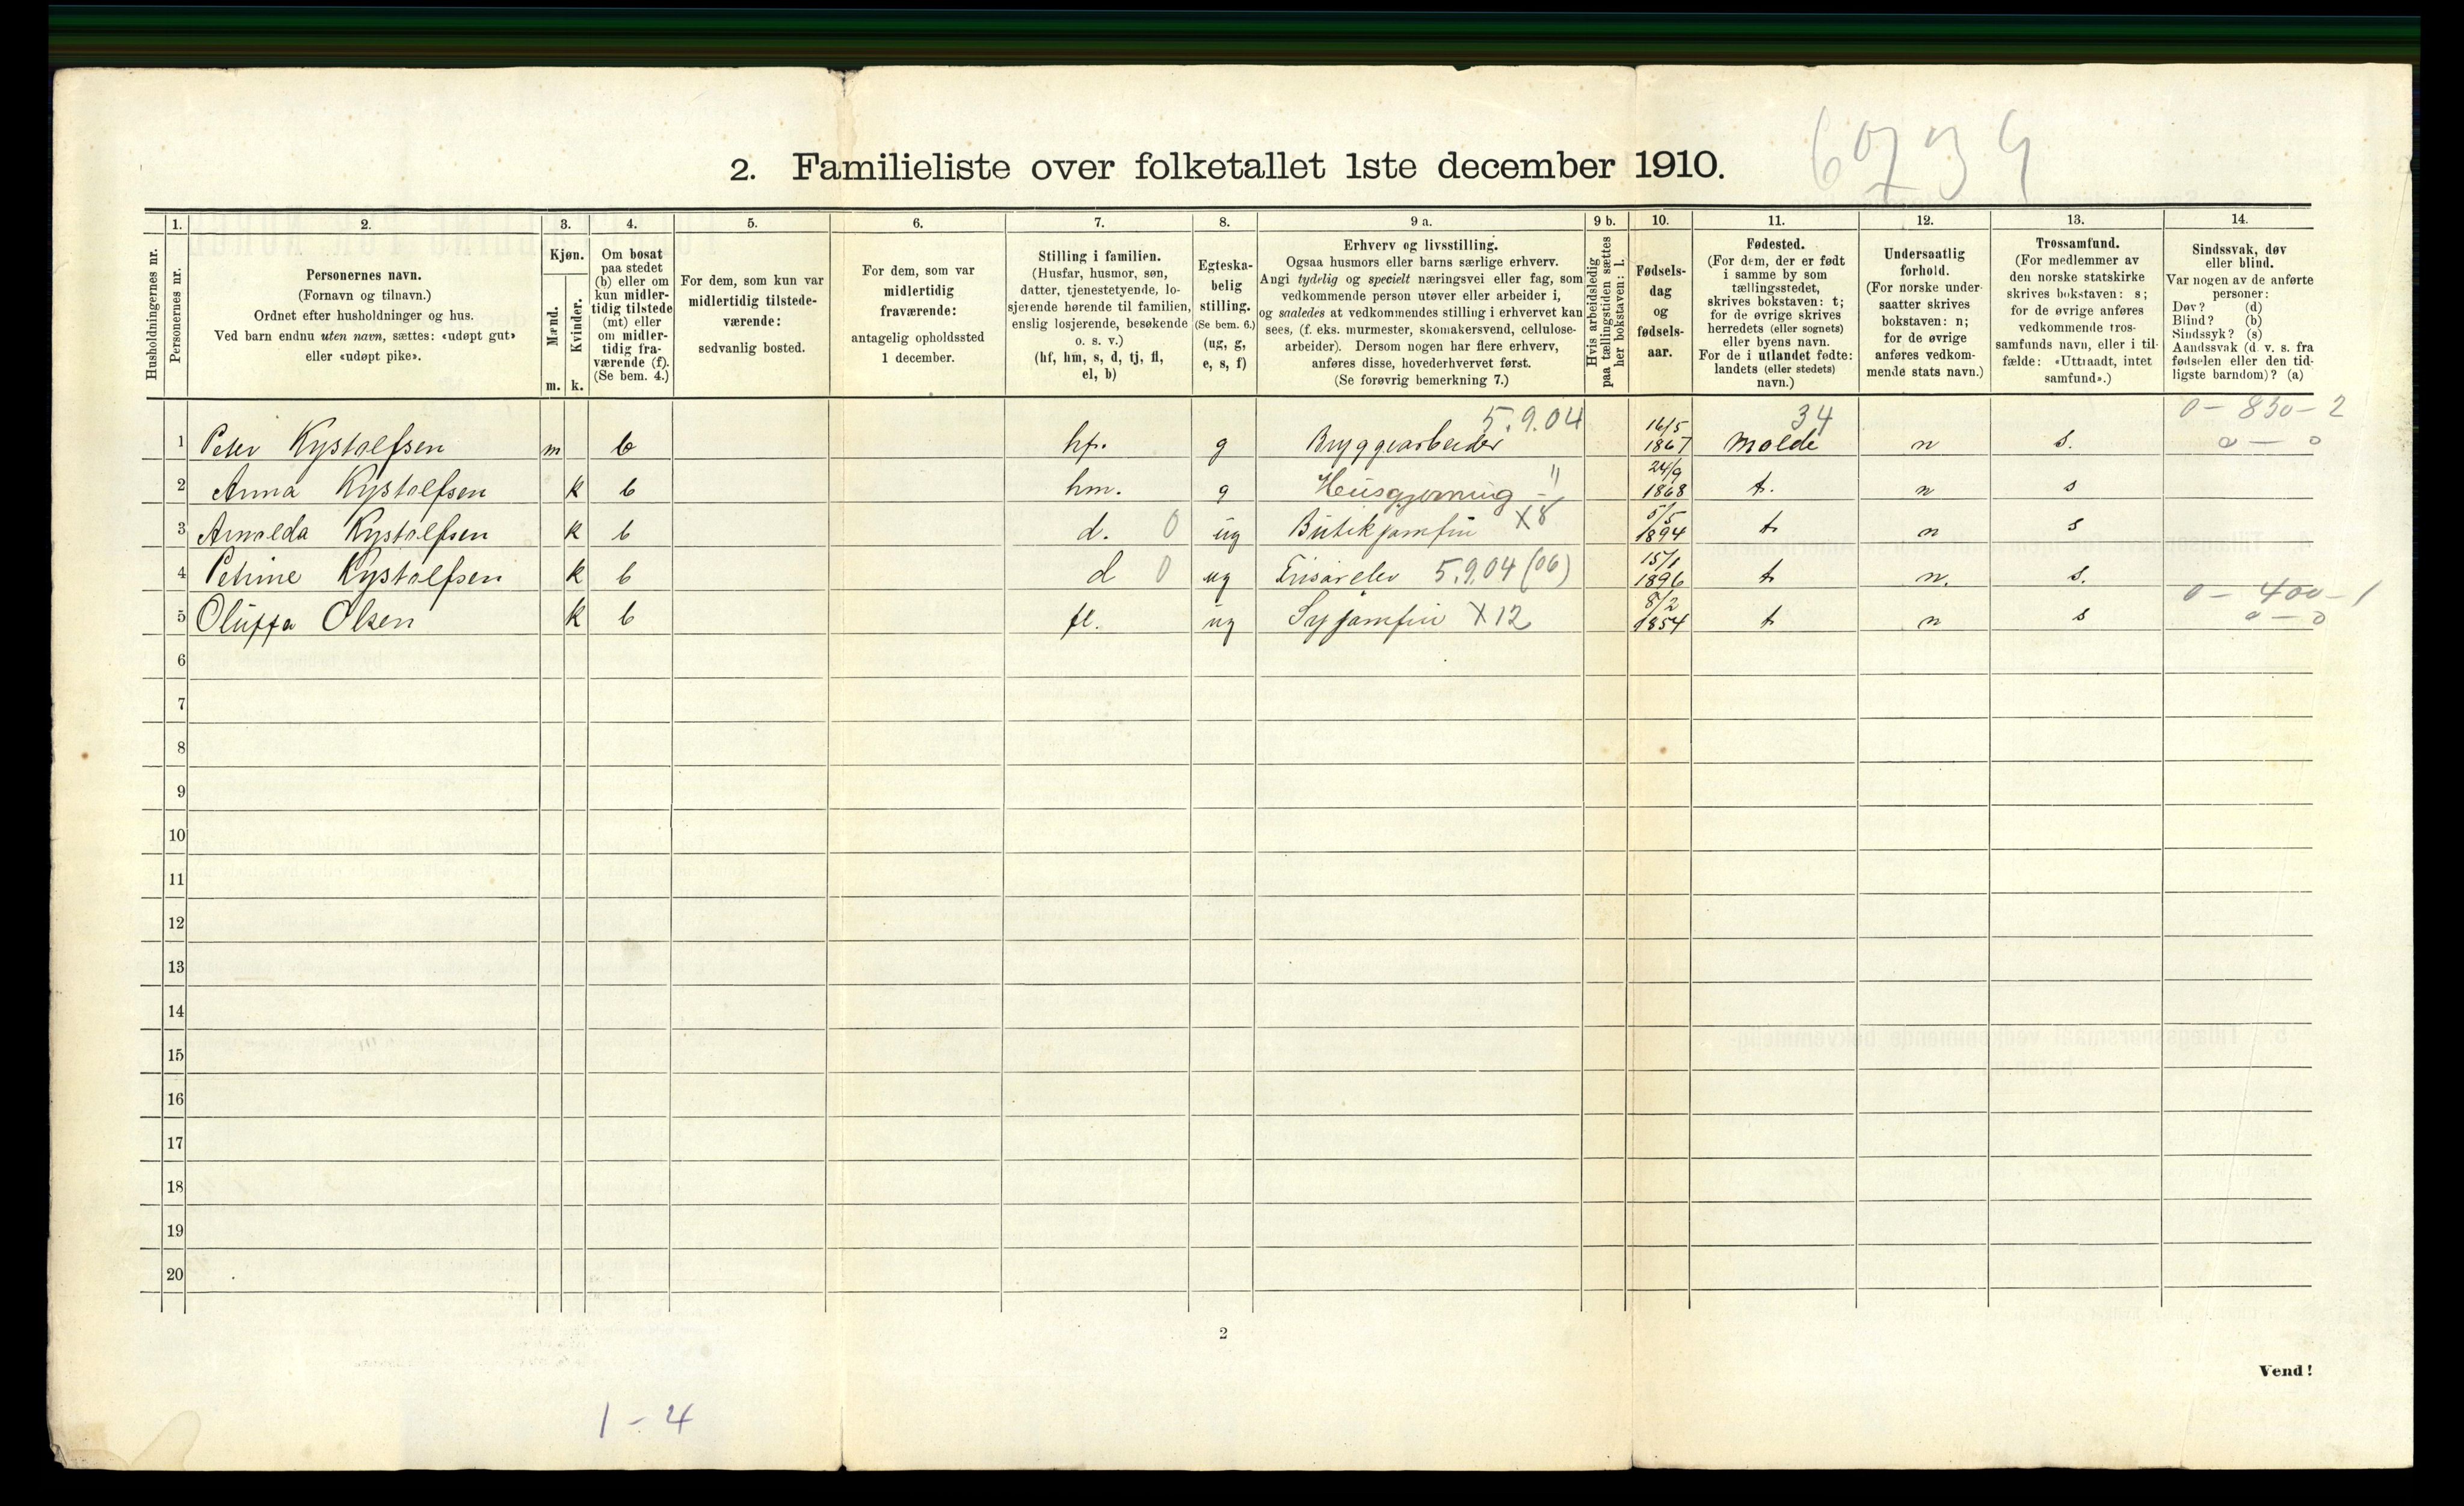 6034
2. Familieliste over folketallet 1ste december 1910.
1. 2. 3. 4. 5. 6. 7. 8. 9 a. 9 b. 10. 11. 12. 13. 14.
Husholdningernes nr.
Personernes nr.
Personernes navn.
(Fornavn og tilnavn.)
Ordnet efter husholdninger og hus.
Ved barn endnu uten navn, sættes: «udøpt gut»
eller «udøpt pike».
Kjøn.
Mænd.
m.
Kvinder.
k.
Om bosat
paa stedet
(b) eller om
kun midler-
tidig tilstede
(mt) eller
om midler-
tidig fra-
værende (f).
(Se bem. 4.)
For dem, som kun var
midlertidig tilstede-
værende:
sedvanlig bosted.
For dem, som var
midlertidig
fraværende:
antagelig opholdssted
1 december.
Stilling i familien.
(Husfar, husmor, søn,
datter, tjenestetyende, lo-
sjerende hørende til familien,
enslig losjerende, besøkende
o. s. v.)
(hf, hm, s, d, tj, fl,
el, b)
Egteska-
belig
stilling.
(Se bem. 6.)
(ug, g,
e, s, f)
Erhverv og livsstilling.
Ogsaa husmors eller barns særlige erhverv.
Angi tydelig og specielt næringsvei eller fag, som
vedkommende person utøver eller arbeider i,
og saaledes at vedkommendes stilling i erhvervet kan
sees, (f. eks. murmester, skomakersvend, cellulose-
arbeider). Dersom nogen har flere erhverv,
anføres disse, hovederhvervet først.
(Se forøvrig bemerkning 7.)
Hvis arbeidsledig
paa tællingstiden sættes
her bokstaven: l.
Fødsels-
dag
og
fødsels-
aar.
Fødested.
(For dem, der er født
i samme by som
tællingsstedet,
skrives bokstaven: t;
for de øvrige skrives
herredets (eller sognets)
eller byens navn.
For de i utlandet fødte:
landets (eller stedets)
navn.)
Undersaatlig
forhold.
(For norske under-
saatter skrives
bokstaven: n;
for de øvrige
anføres vedkom-
mende stats navn.)
Trossamfund.
(For medlemmer av
den norske statskirke
skrives bokstaven: s;
for de øvrige anføres
vedkommende tros-
samfunds navn, eller i til-
fælde: «Uttraadt, intet
samfund».)
Sindssvak, døv
eller blind.
Var nogen av de anførte
personer:
Døv? (d)
Blind? (b)
Sindssyk? (s)
Aandssvak (d. v. s. fra
fødselen eller den tid-
ligste barndom)? (a)
5.9.04 34 0 - 830 - 2
1 Peter Kystolfsen m b hf. g Bryggearbeider 16/5 1867 Molde n s. 0 - 0
2 Anna Kystolfsen k b hm. g Husgjerning - " 24/9 1868 t. n s
3 Arnolda Kystolfsen k b d. 0 ug Butikjomfru X8 5/5 1894 t n s
4 Petrine Kystolfsen k b d 0 ug Frisørelev 5.9.04 (06) 15/1 1896 t n. s.
0 - 400 - 1
5 Oluffa Olsen k b fl. ug Syjomfru X12 8/2 1854 t n s 0 - 0
6
7
8
9
10
11
12
13
14
15
16
17
18
19
20
2
Vend!
1 - 4